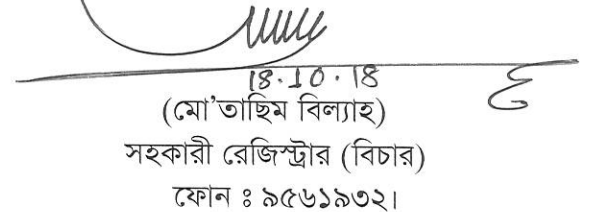 18.10.18
(মো'তাছিম বিল্যাহ)
সহকারী রেজিস্ট্রার (বিচার)
ফোন ঃ ৯৫৬১৯৩২।